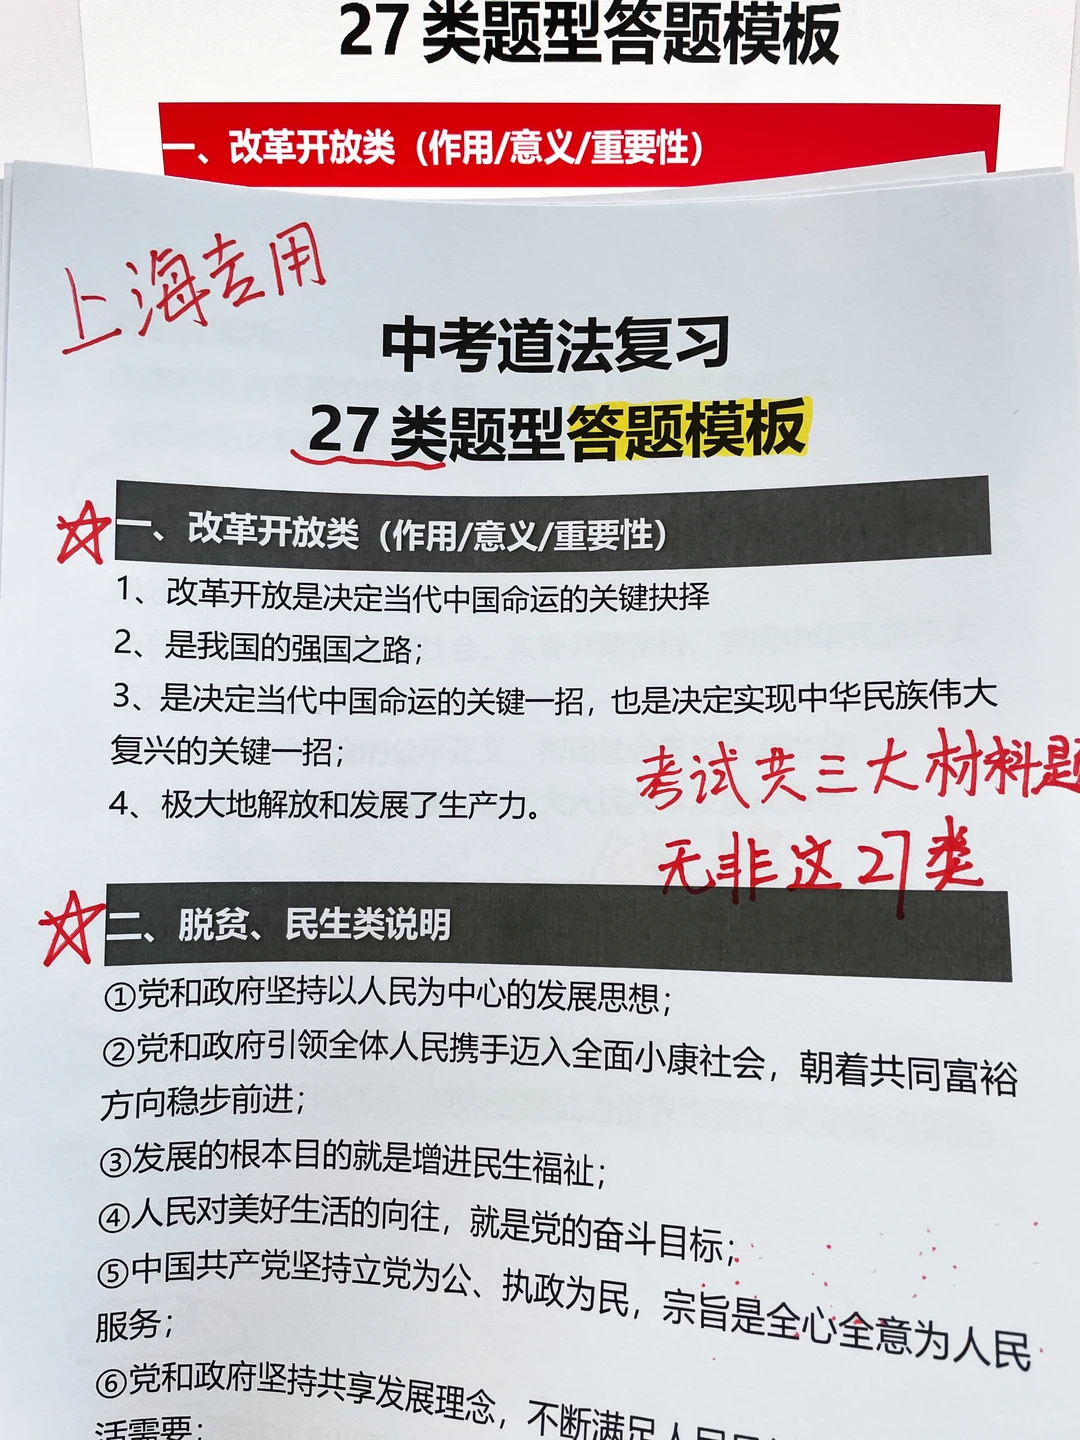 27类题型答题模板
一、改革开放类（作用/意义/重要性）
上海专用
中考道法复习
27类题型答题模板
一、改革开放类（作用/意义/重要性）
1、改革开放是决定当代中国命运的关键抉择
2、是我国的强国之路；
3、是决定当代中国命运的关键一招，也是决定实现中华民族伟大
复兴的关键一招；
4、极大地解放和发展了生产力。
考试共三大材料题
无非这27类
二、脱贫、民生类说明
①党和政府坚持以人民为中心的发展思想；
②党和政府引领全体人民携手迈入全面小康社会，朝着共同富裕
方向稳步前进；
③发展的根本目的就是增进民生福祉；
④人民对美好生活的向往，就是党的奋斗目标；
⑤中国共产党坚持立党为公、执政为民，宗旨是全心全意为人民
服务；
⑥党和政府坚持共享发展理念，不断满足人民
活需要；